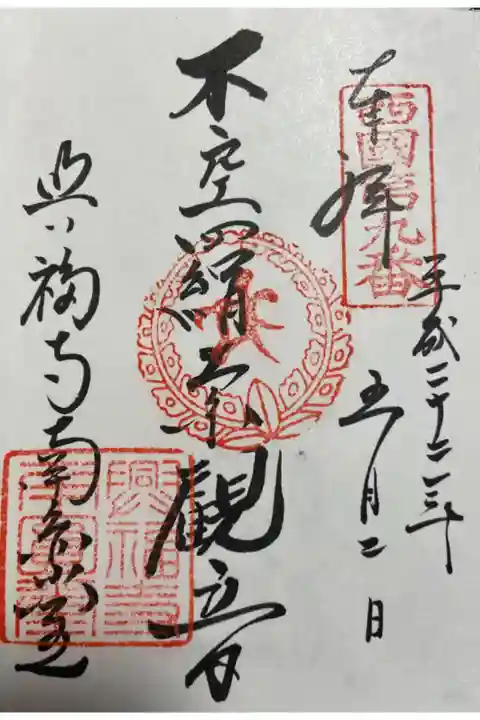 奉拝
西國第九番
平成二十二年
五月二日
不空羂索觀音
興福寺南圓堂
興福寺
南圓堂